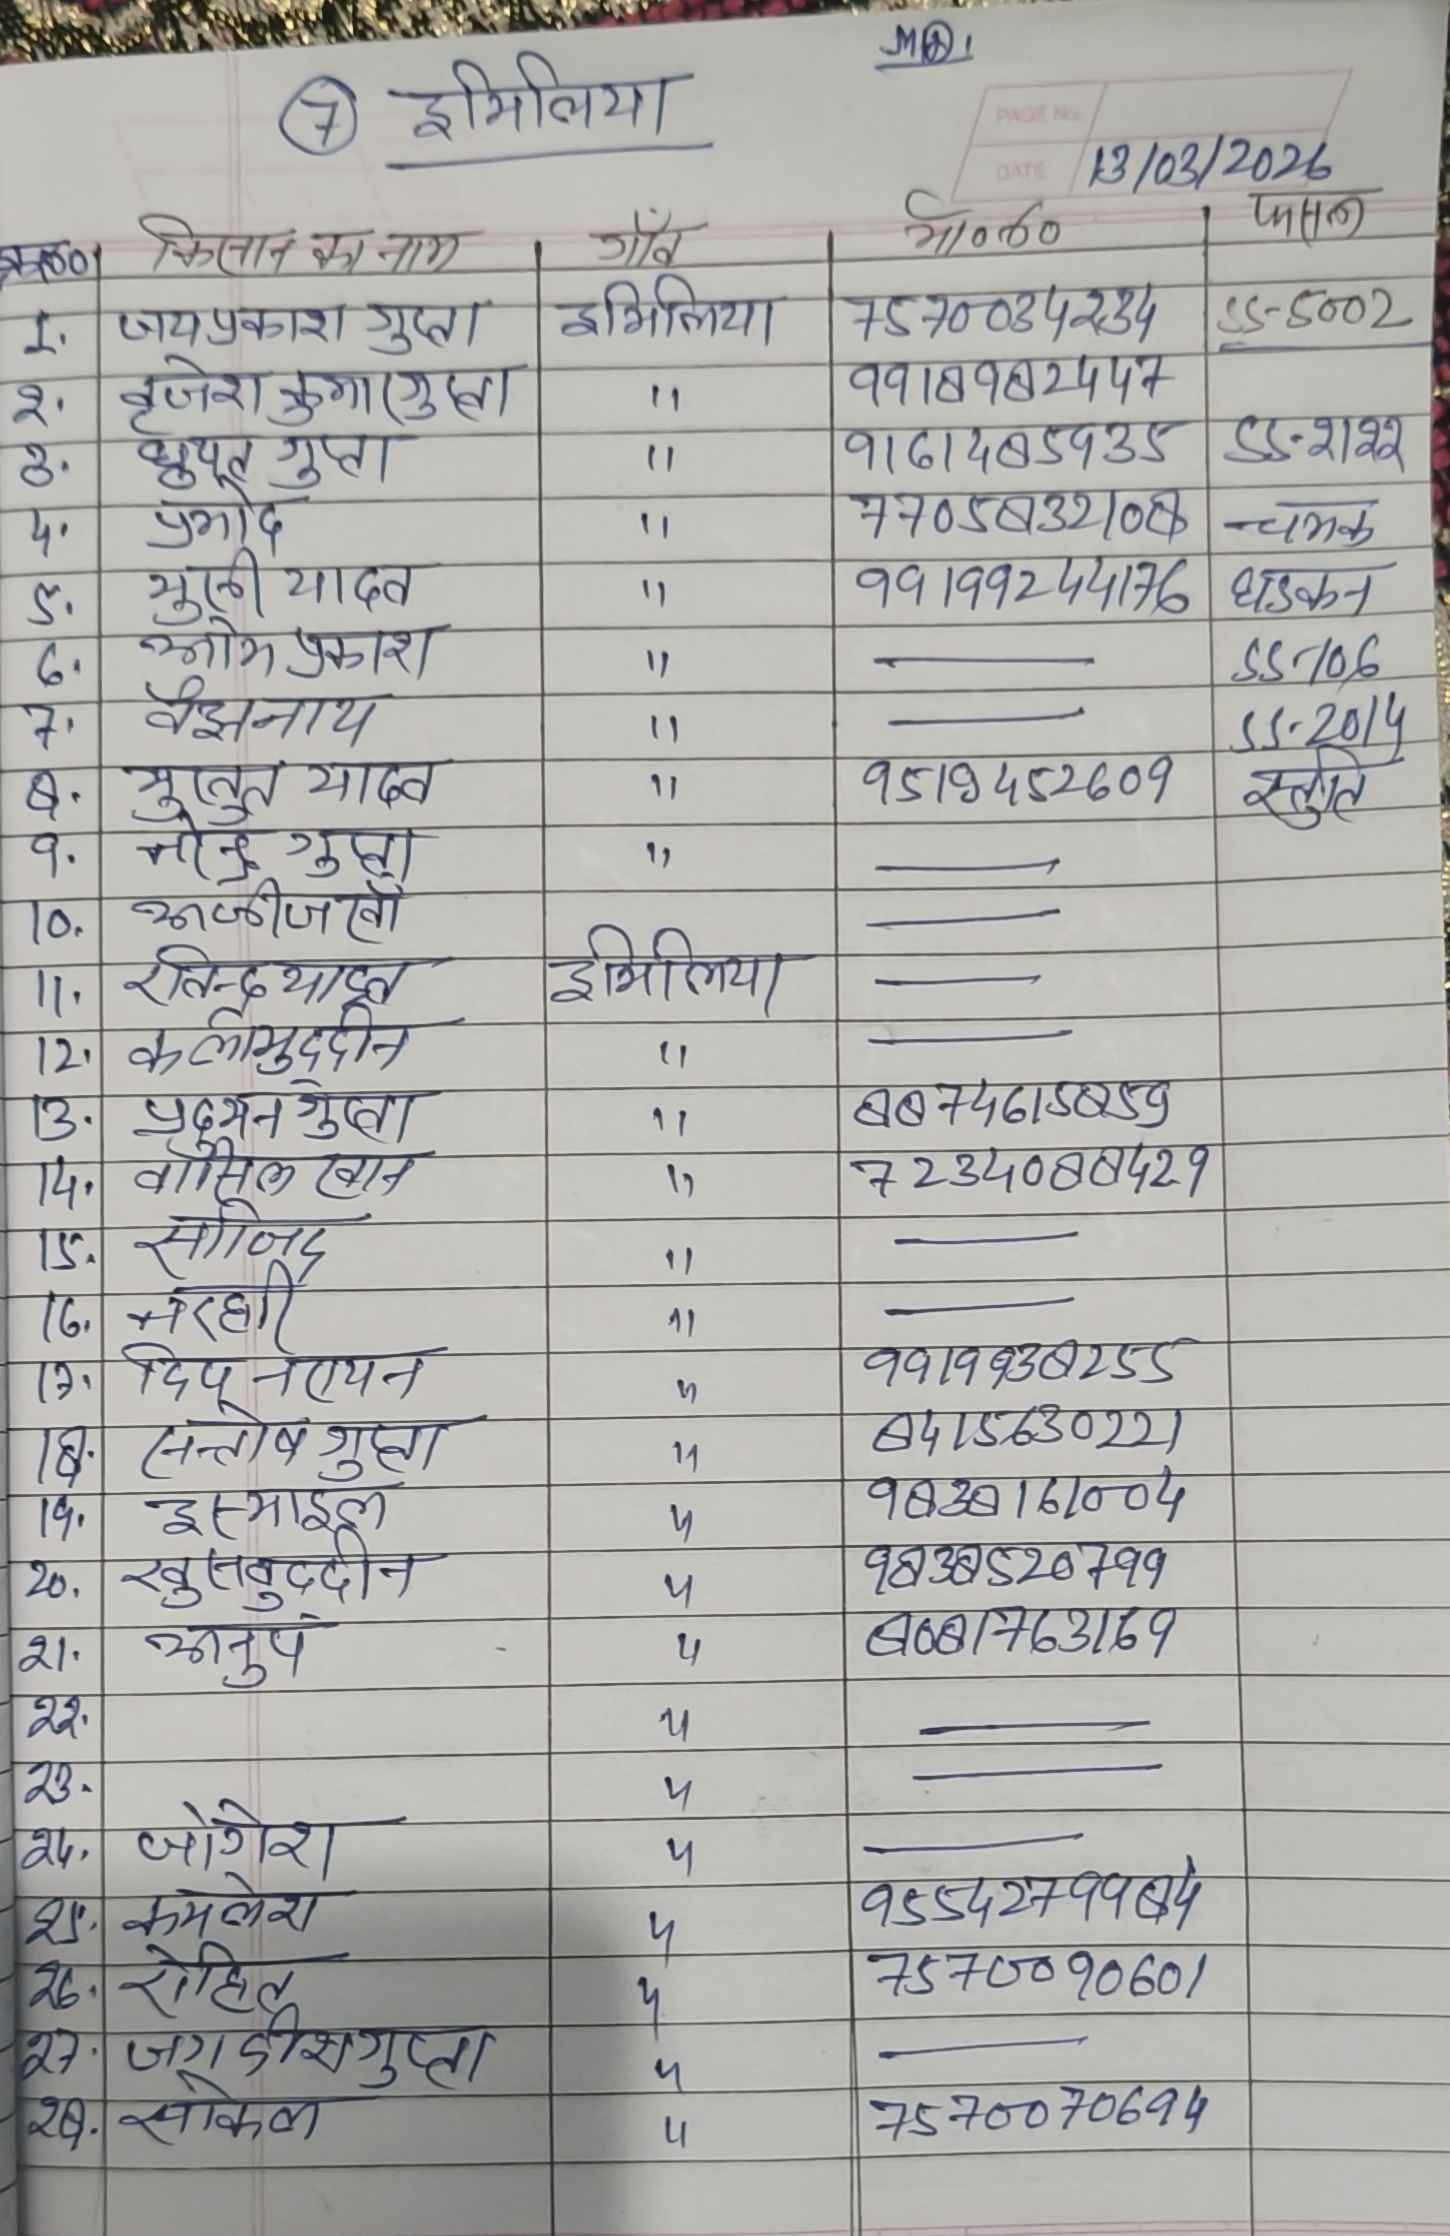 ⑦ इमिलिया
PAGE No.
DATE 13/03/2026
क्र०सं० किसान का नाम गाँव मो०नं० फसल
1. जयप्रकाश गुप्ता इमिलिया 7570034234 SS-5002
२. बृजेश कुमार गुप्ता " 9918982447
३. गुप्ता " 9161485935 SS-२१२२
४. प्रमोद " 7705832108 चमक
५. मुरली यादव " 99199244176 धडकन
६. ओम प्रकाश " — SS-106
7. बैजनाथ " — SS-2014
8. यादव " 9519452609 स्तुति
9. नरेन्द्र गुप्ता " —
10. खाँ —
11. रविन्द्र यादव इमिलिया —
12. कलीमुद्दीन " —
13. प्रदुमन गुप्ता " 88746158259
14. वासिल खान " 7234088429
15. साजिद " —
16. नरही " —
17. दिपू नरायन " 9919938255
18. सन्तोष गुप्ता " 8415630221
19. इस्माइल " 9838161004
20. " 9838520799
21. अनुप " 8081763169
22. " —
23. " —
24. जोगेश " —
25. कमलेश " 9554279984
26. रोहित " 7570090601
27. जगदीश गुप्ता " —
28. " 7570070694